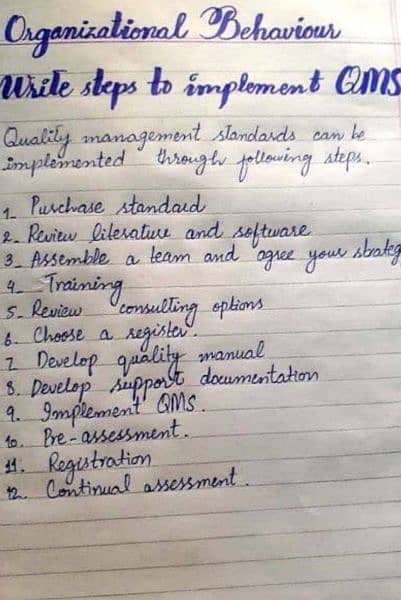 Organizational Behaviour
Write steps to implement QMS
Quality management standards can be
implemented through following steps.
1. Purchase standard
2. Review literature and software
3. Assemble a team and agree your strateg
4. Training
5. Review consulting options
6. Choose a register.
7. Develop quality manual
8. Develop support documentation
9. Implement QMS.
10. Pre-assessment.
11. Registration
12. Continual assessment.